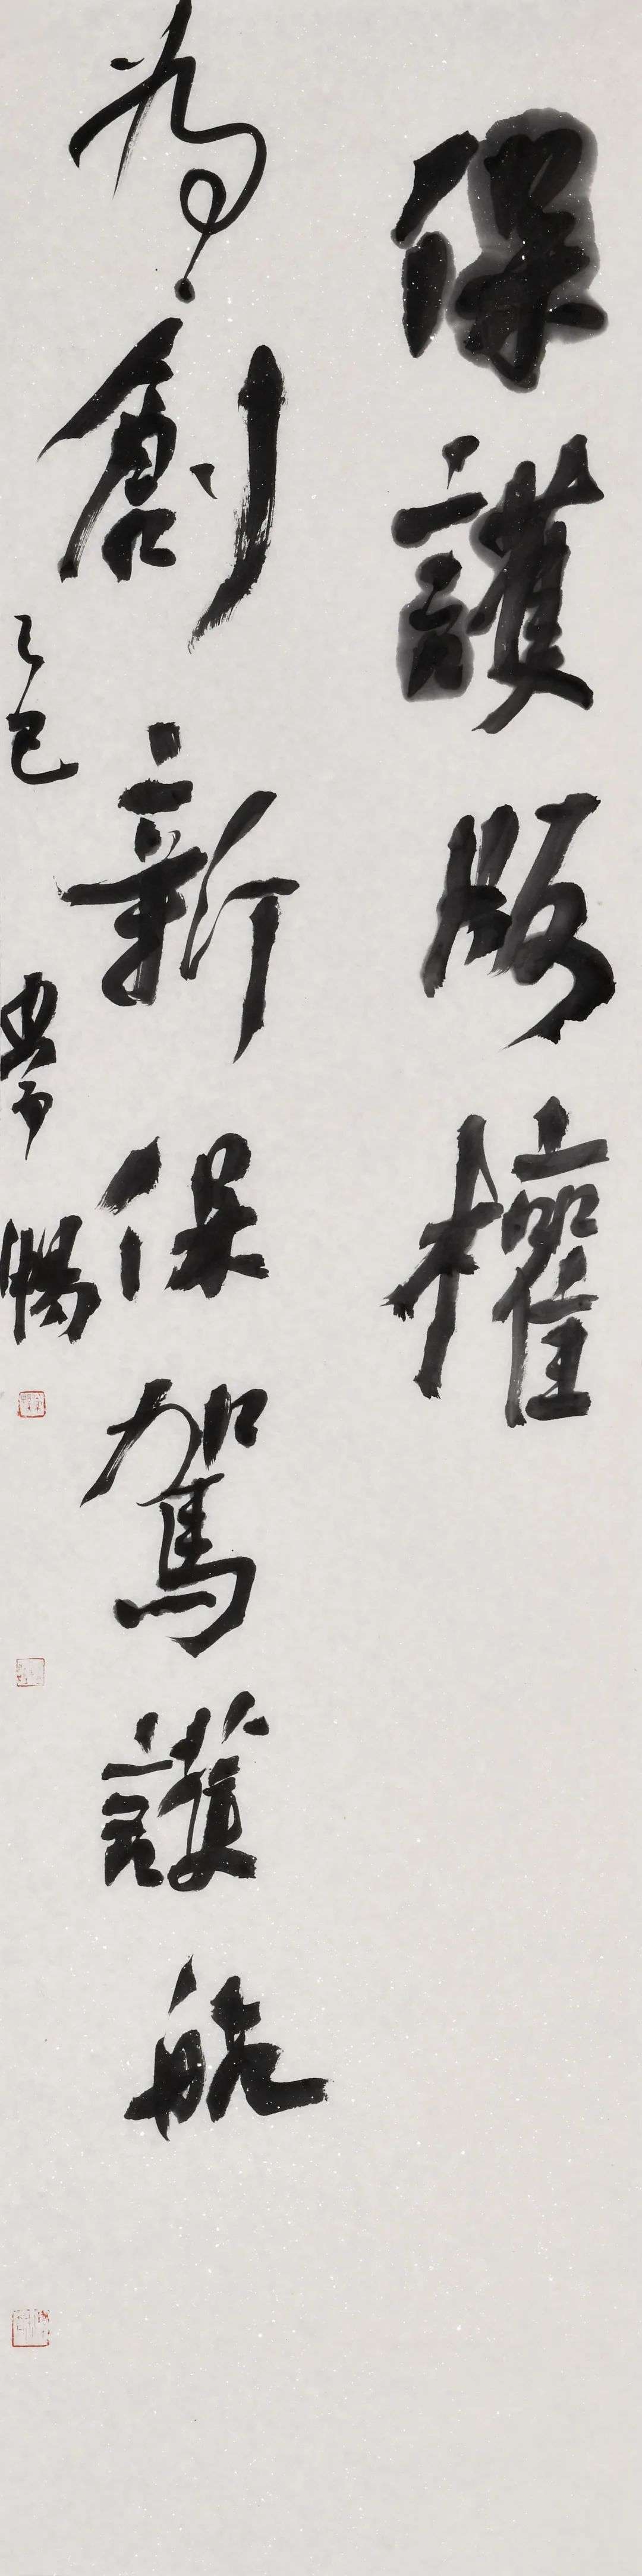 保護版權
為創新保駕護航
乙巳
暢